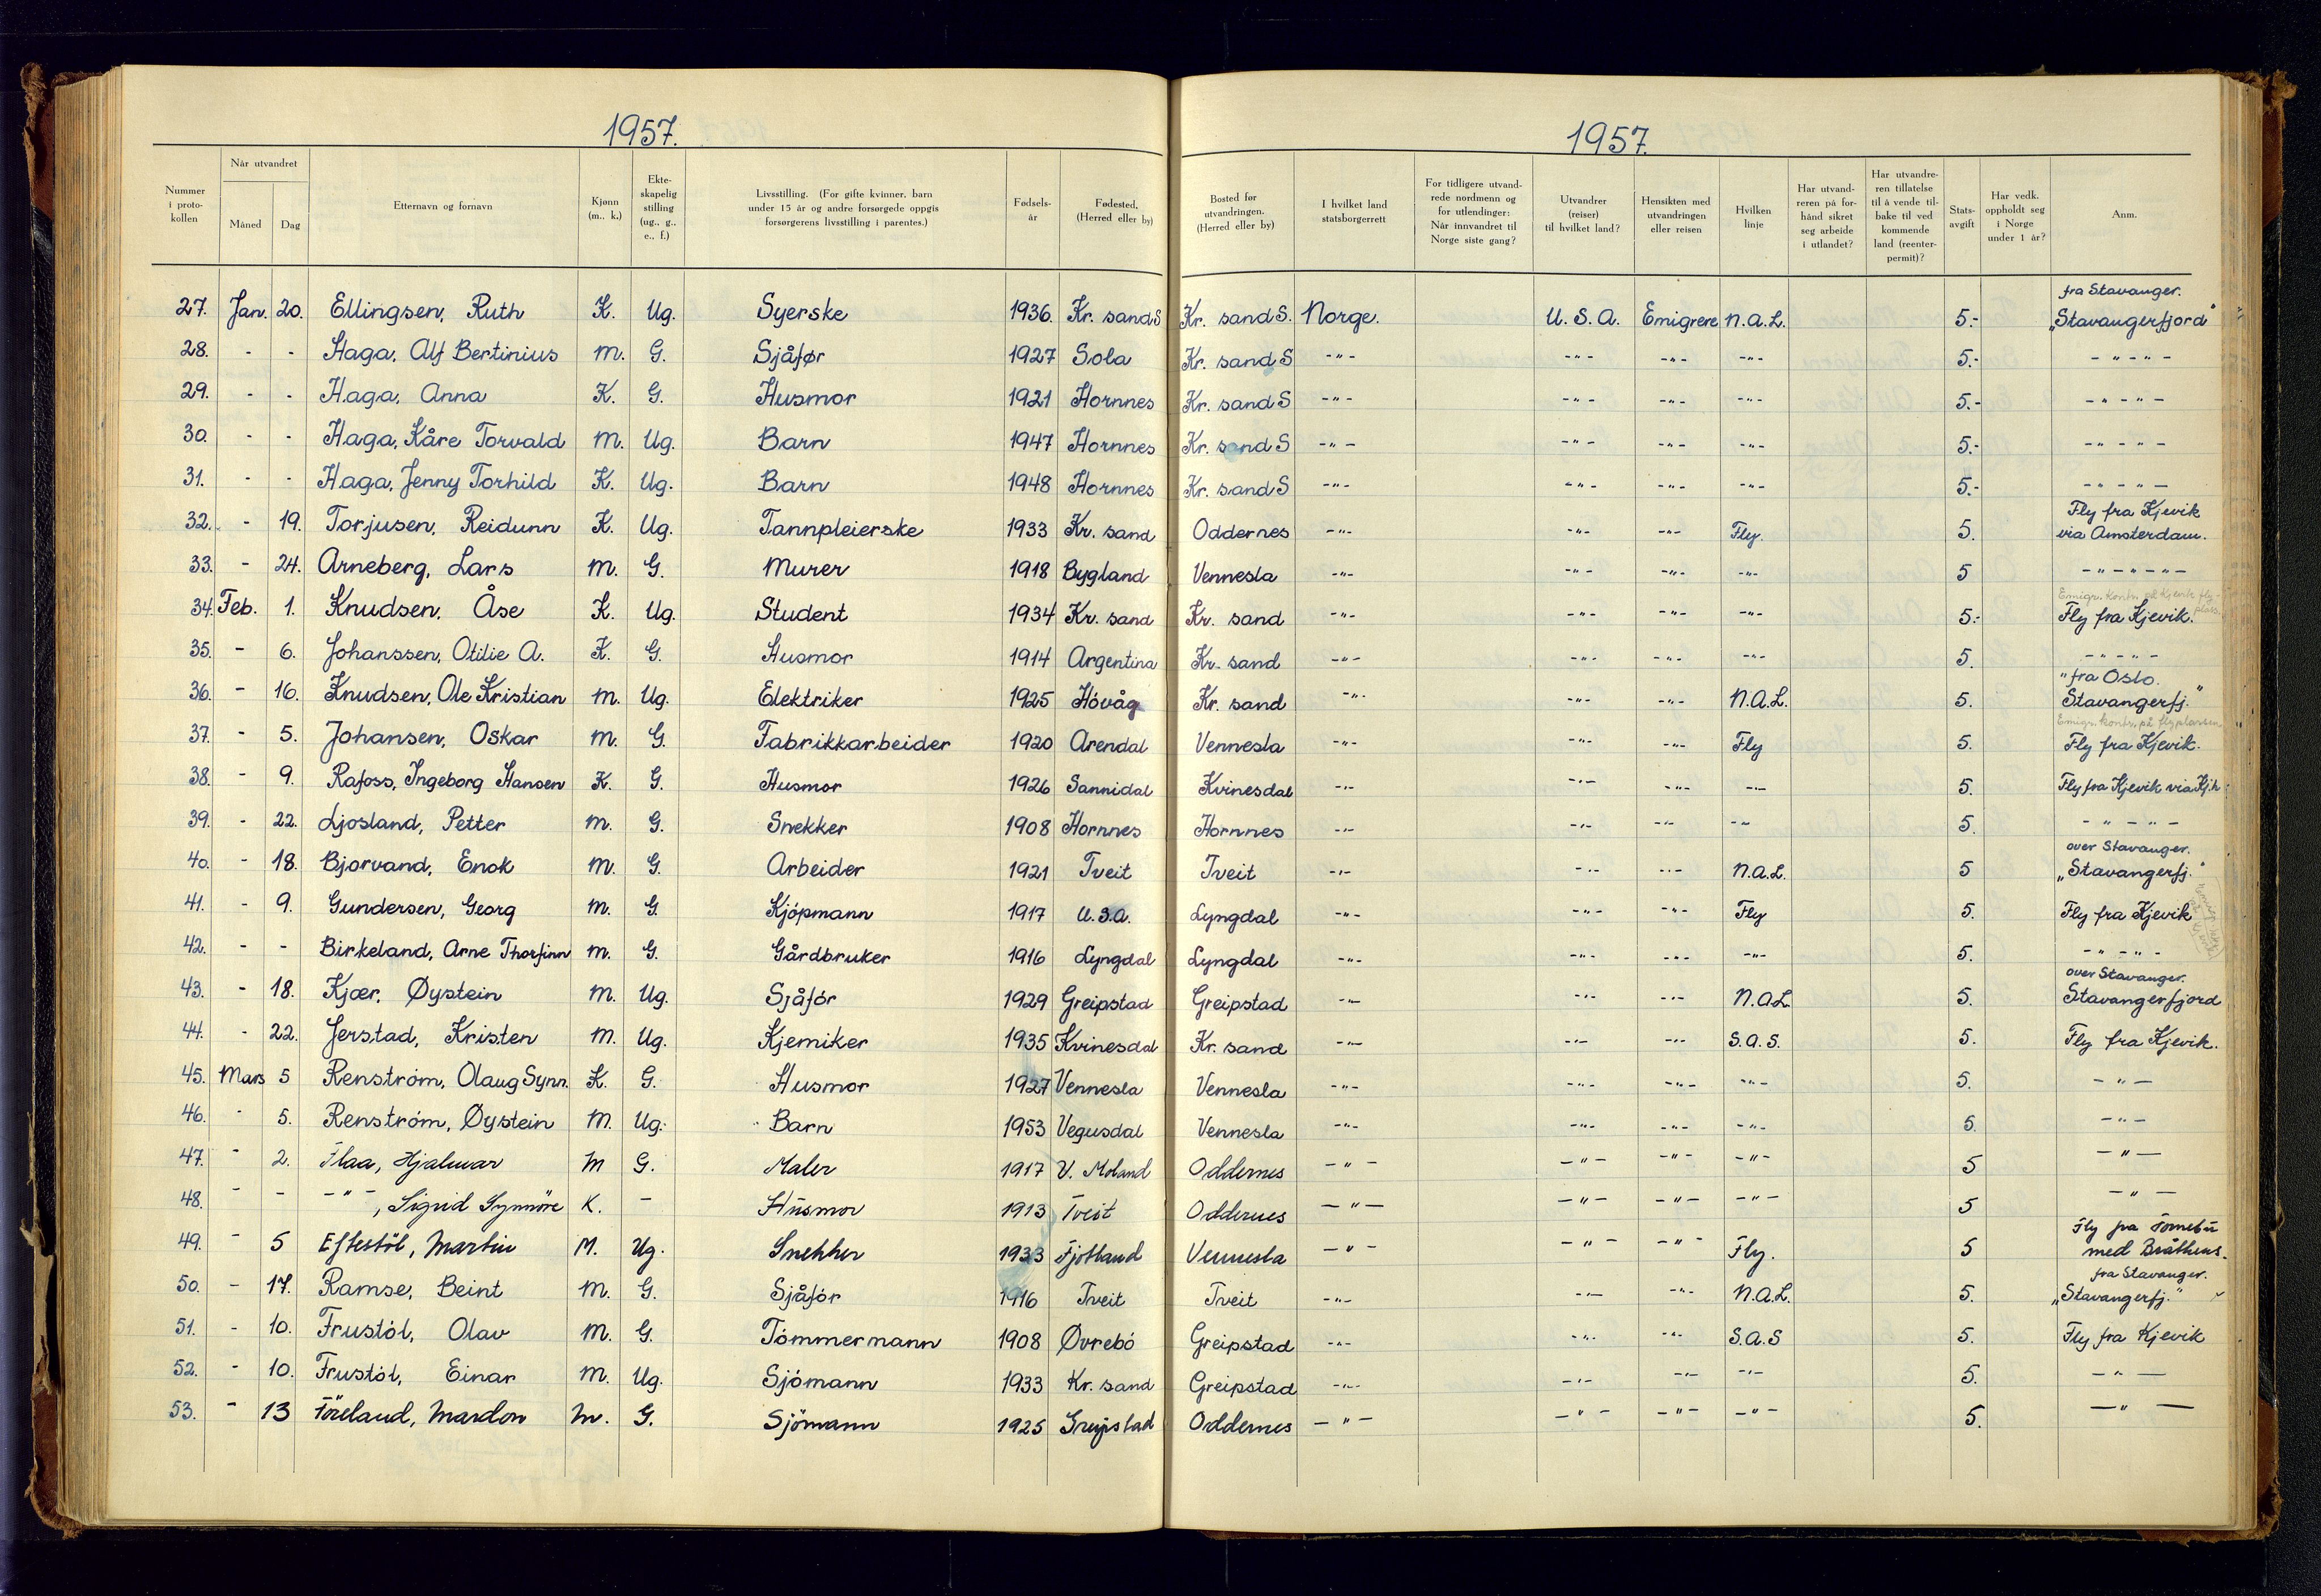 1957.
1957.
Nummer i proto-kollen | Når utvandret Måned | Dag | Etternavn og fornavn | Kjønn (m., k.) | Ekte-skapelig stilling (ug., g., e., f.) | Livsstilling. (For gifte kvinner, barn under 15 år og andre forsørgede oppgis forsørgerens livsstilling i parentes.) | Fødsels-år | Fødested, (Herred eller by) | Bosted før utvandringen. (Herred eller by) | I hvilket land statsborgerrett | For tidligere utvand-rede nordmenn og for utlendinger: Når innvandret til Norge siste gang? | Utvandrer (reiser) til hvilket land? | Hensikten med utvandringen eller reisen | Hvilken linje | Har utvand-reren på for-hånd sikret seg arbeide i utlandet? | Har utvandre-ren tillatelse til å vende til-bake til ved kommende land (reenter-permit)? | Stats-avgift | Har vedk. oppholdt seg i Norge under 1 år? | Anm.
27. Jan. 20. Ellingsen, Ruth K. Ug. Syerske 1936. Kr. sand S Kr. sand S. Norge. U.S.A. Emigrere N.A.L. 5.- fra Stavanger. „Stavangerfjord"
28. - - Haga, Alf Bertinius M. G. Sjåfør 1927 Sola Kr. sand S -"- -"- -"- -"- 5.- -"-"-
29. - - Haga, Anna K. G. Husmor 1921 Hornnes Kr. sand S -"- -"- -"- -"- 5.- -"-"-
30. - - Haga, Kåre Torvald M. Ug. Barn 1947 Hornnes Kr. sand S -"- -"- -"- -"- 5.- -"-"-
31. - - Haga, Jenny Torhild K. Ug. Barn 1948 Hornnes Kr. sand S -"- -"- -"- -"- 5.- -"-"-
32. - 19. Torjusen, Reidunn K. Ug. Tannpleierske 1933 Kr. sand Oddernes -"- -"- -"- Fly. 5. Fly fra Kjevik via Amsterdam.
33. - 24. Arneberg, Lars M. G. Murer 1918 Bygland Vennesla -"- -"- -"- -"- 5 -"-"-"-
34. Feb. 1. Knudsen, Åse K. Ug. Student 1934 Kr. sand Kr. sand -"- -"- -"- -"- 5.- Emigr. kontr. på Kjevik fly-plass. Fly fra Kjevik.
35. - 6. Johanssen, Otilie A. K. G. Husmor 1914 Argentina Kr. sand -"- -"- -"- -"- 5. -"-"-
36. - 16. Knudsen, Ole Kristian M. Ug. Elektriker 1925 Hövåg Kr. sand -"- -"- -"- N.A.L. 5. "fra Oslo. Stavangerfj."
37. - 5. Johansen, Oskar M. G. Fabrikkarbeider 1920 Arendal Vennesla -"- -"- -"- Fly 5. Emigr. kontr. på flyplassen. Fly fra Kjevik.
38. - 9. Rafoss, Ingeborg Hansen K. G. Husmor 1926 Sannidal Kvinesdal -"- -"- -"- -"- 5. Fly fra Kjevik via Kj.h
39. - 22. Ljosland, Petter M. G. Snekker 1908 Hornnes Hornnes -"- -"- -"- -"- 5. -"-"-
40. - 18. Bjorvand, Enok M. G. Arbeider 1921 Tveit Tveit -"- -"- -"- N.A.L. 5 over Stavanger. „Stavangerfj."
41. - 9. Gundersen, Georg M. G. Kjöpmann 1917 U.S.A. Lyngdal -"- -"- -"- Fly 5. Fly fra Kjevik
42. - - Birkeland, Arne Thorfinn M. G. Gårdbruker 1916 Lyngdal Lyngdal -"- -"- -"- -"- 5. -"-"-
43. - 18. Kjær, Øystein M. Ug. Sjåför 1929 Greipstad Greipstad -"- -"- -"- N.A.L. 5. over Stavanger. Stavangerfjord
44. - 22. Jerstad, Kristen M. Ug. Kjemiker 1935 Kvinesdal Kr. sand -"- -"- -"- S.A.S. 5. Fly fra Kjevik.
45. Mars 5 Renström, Olaug Synn. K. G. Husmor 1927 Vennesla Vennesla -"- -"- -"- -"- 5. -"-
46. - 5. Renström, Øystein M. Ug. Barn 1953 Vegusdal Vennesla -"- -"- -"- -"- 5. -"-
47. - 2. Flaa, Hjalmar M G. Maler 1917 V. Moland Oddernes -"- -"- -"- -"- 5 -"-
48. - - -"-, Sigrid Synnöve K. - Husmor 1913 Tveit Oddernes -"- -"- -"- -"- 5 -"-
49. - 5 Eftestöl, Martin M. Ug. Snekker 1933 Fjotland Vennesla -"- -"- -"- Fly. 5 Fly fra Fornebu med Bråthens.
50. - 17. Ramse, Beint M. G. Sjåför 1916 Tveit Tveit -"- -"- -"- N.A.L. 5. fra Stavanger. „Stavangerfj."
51. - 10. Frustöl, Olav M. G. Tömmermann 1908 Øvrebö Greipstad -"- -"- -"- S.A.S 5. Fly fra Kjevik
52. - 10. Frustöl, Einar M. Ug. Sjömann 1933 Kr. sand Greipstad -"- -"- -"- -"- 5. -"-
53. - 13 Föreland, Mardon M. G. Sjömann 1925 Greipstad Oddernes -"- -"- -"- -"- 5. -"-